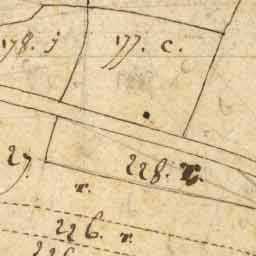 178. j
177. c.
27
228. r.
r.
226. r.
226